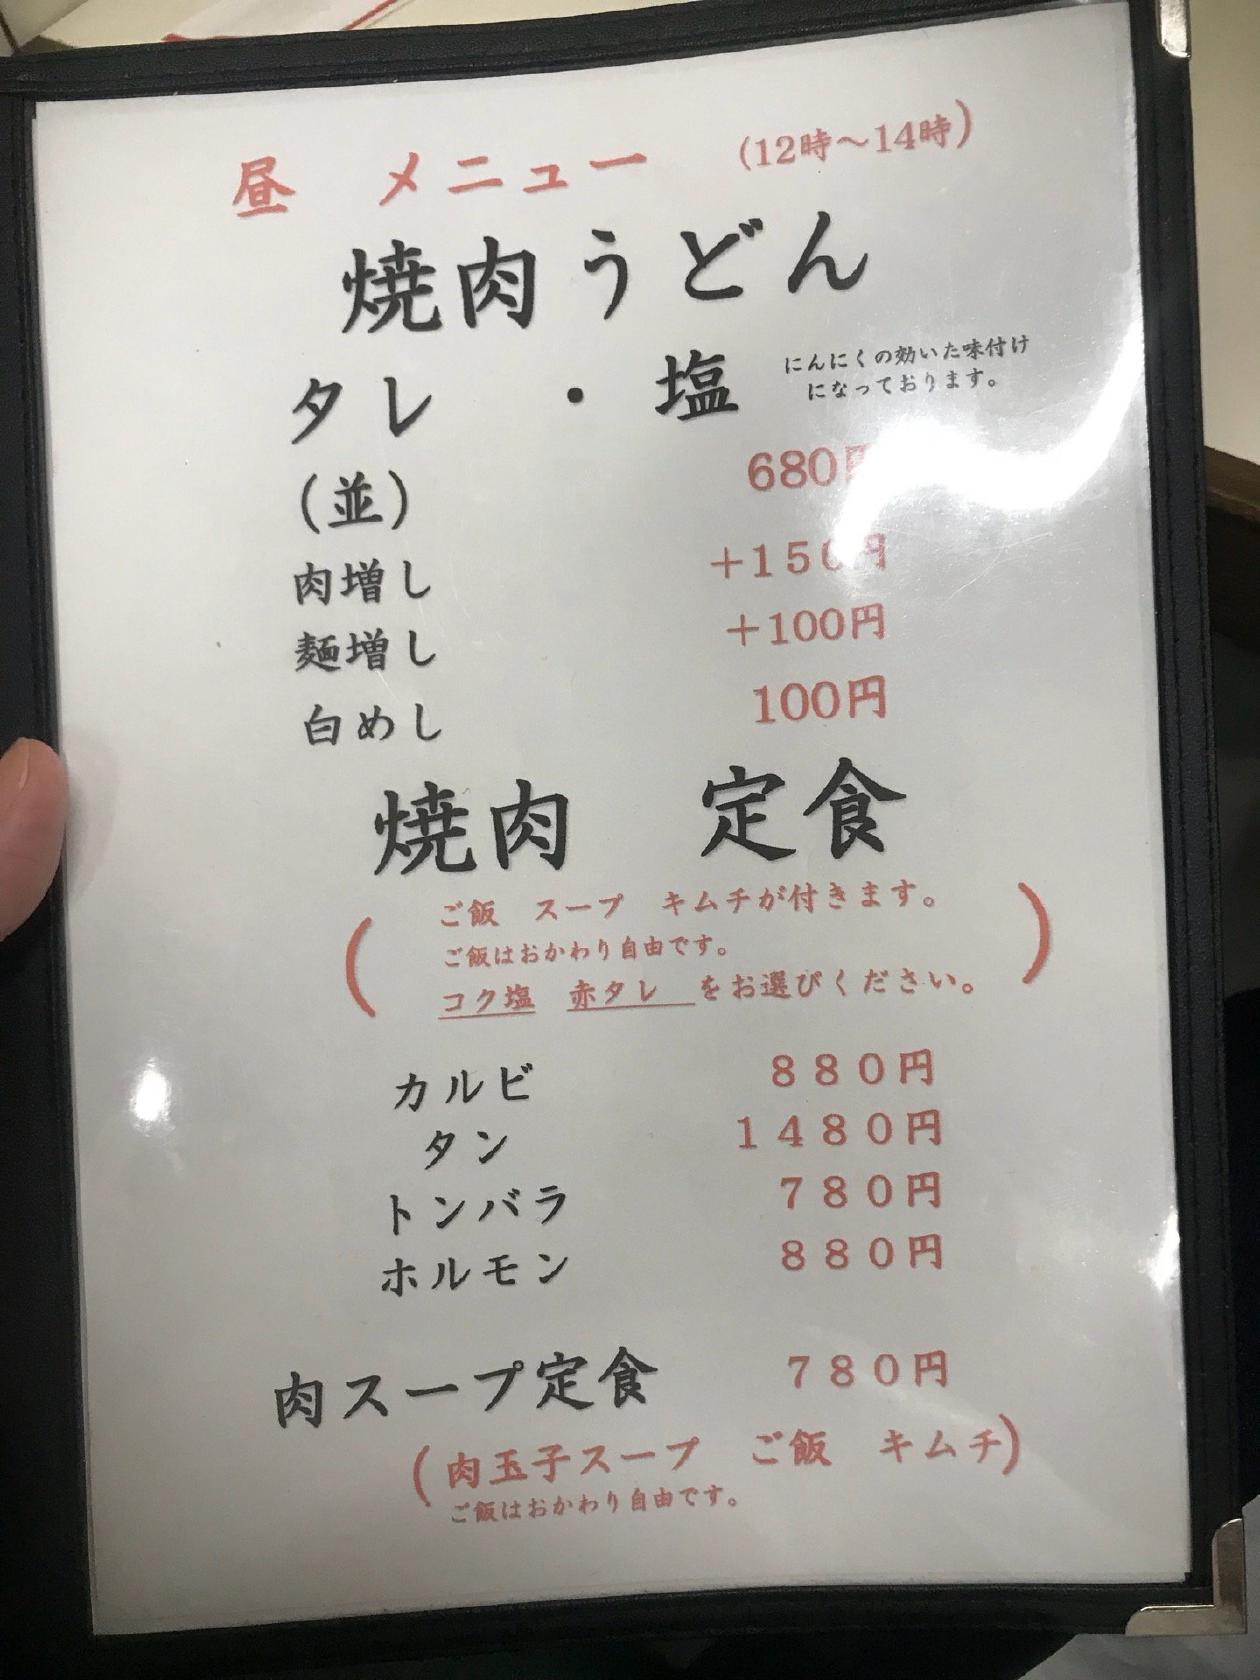 昼　メニュー　(12時～14時)
焼肉うどん
タレ　・塩　にんにくの効いた味付け
になっております。
(並)　680円
肉増し　＋150円
麺増し　＋100円
白めし　100円
焼肉　定食
(ご飯　スープ　キムチが付きます。
ご飯はおかわり自由です。
コク塩　赤タレ　をお選びください。)
カルビ　８８０円
タン　１４８０円
トンバラ　７８０円
ホルモン　８８０円
肉スープ定食　７８０円
(肉玉子スープ　ご飯　キムチ)
ご飯はおかわり自由です。